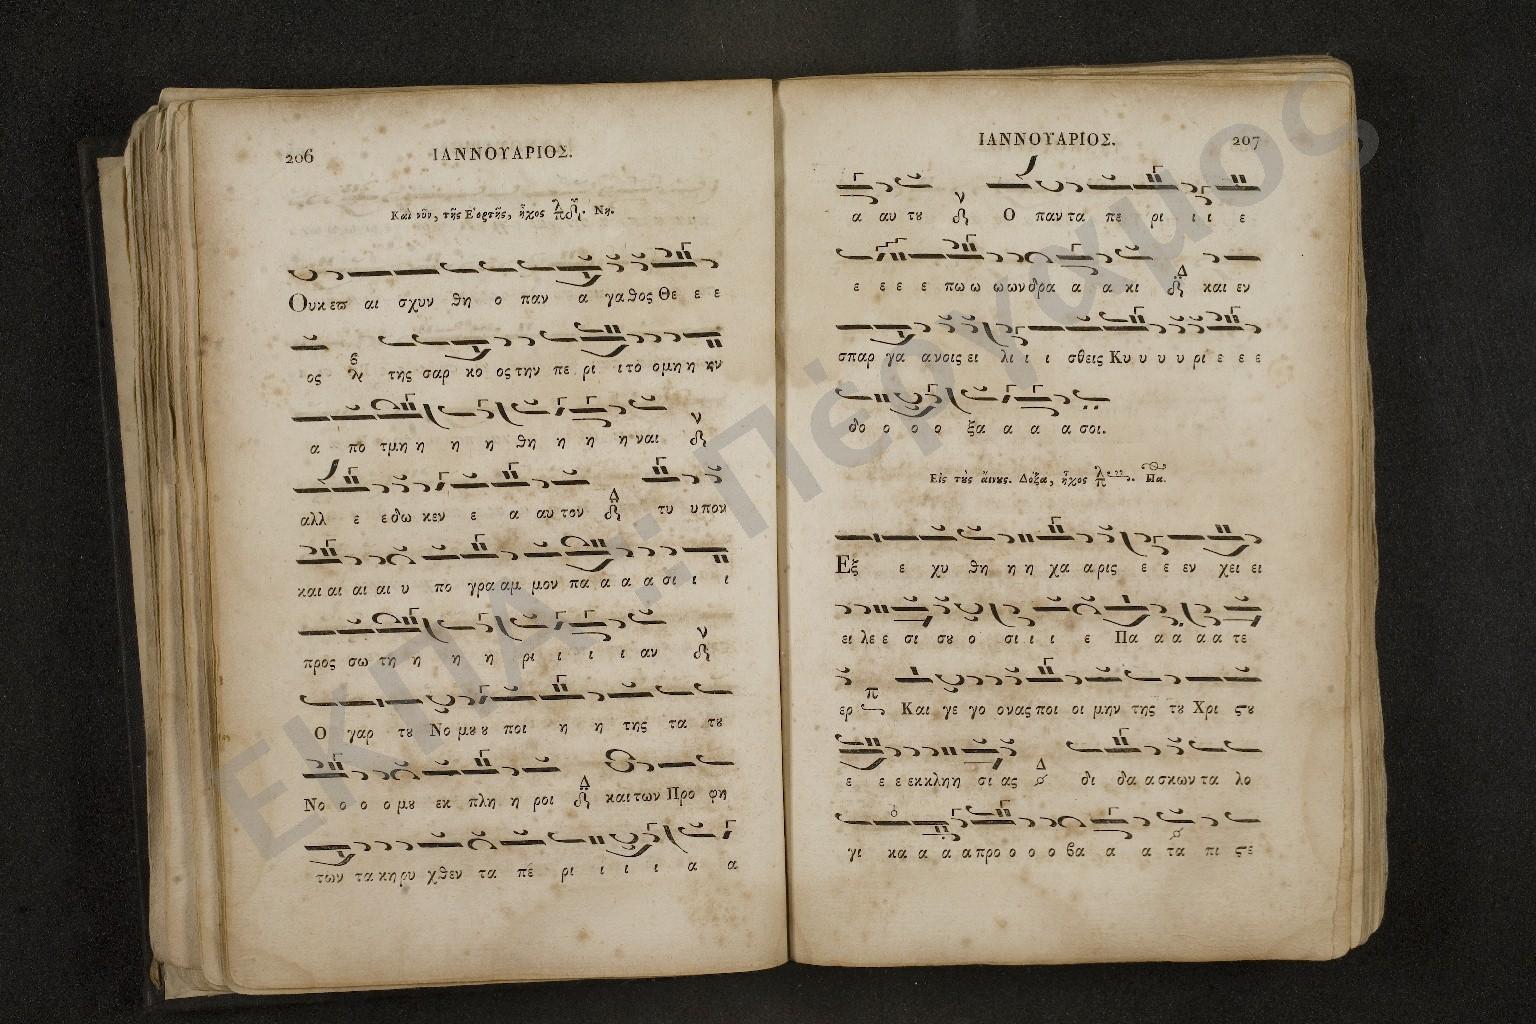 206
ΙΑΝΝΟΥΑΡΙΟΣ.
Καὶ νῦν, τῆς Ἑορτῆς, ἦχος Νη.
Ουκ επ αι σχυν θη ο παν α γα θος Θε ε ε
ος της σαρ κο ος την πε ρι ι το ο μη η ην
α πο τμη η η η θη η η η ναι
αλλ ε ε δω κεν ε α αυ τον τυ υ πον
και αι αι αι υ πο γρα αμ μον πα α α α σι ι ι
προς σω τη η η η ρι ι ι ι αν
Ο γαρ του Νο μου ου ποι η η της τα του
Νο ο ο ο μου εκ πλη η ροι και των Προ φη
των τα κη ρυ χθεν τα πε ρι ι ι ι α α
ΙΑΝΝΟΥΑΡΙΟΣ.
207
α αυ του Ο παν τα πε ρι ι ι ε
ε ε ε ε πω ω ω ων δρα α α κι και εν
σπαρ γα α νοις ει λι ι ι σθεις Κυ υ υ υ ρι ε ε ε
δο ο ο ο ξα α α α σοι.
Εἰς τοὺς αἴνους. Δόξα, ἦχος Πα.
Εξ ε χυ θη η η χα α ρις ε ε εν χει ει
ει λε ε σι σου ο σι ι ι ε Πα α α α α τε
ερ Και γε γο ο νας ποι οι μην της του Χρι στου
ε ε ε εκκλη η σι ας δι δα α σκων τα λο
γι κα α α α προ ο ο ο βα α α τα πι στε
ΕΚΠΑ :: Πέργαμος